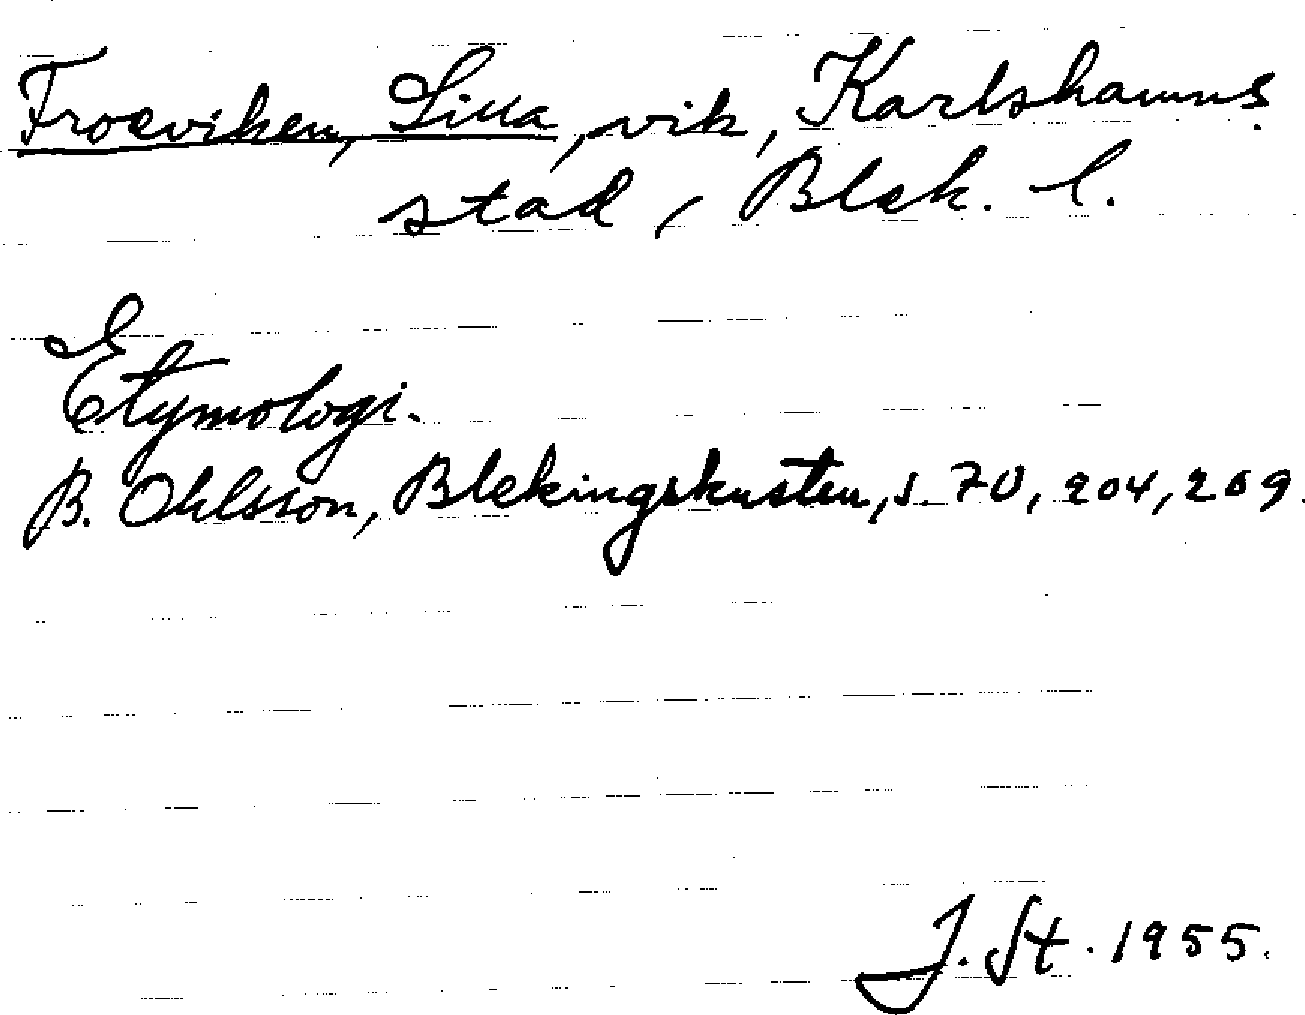 Froeviken, Lilla, vik, Karlshamns
stad, Blek. l.
Etymologi.
B. Ohlsson, Blekingskusten, s. 70, 204, 209.
J. St. 1955.